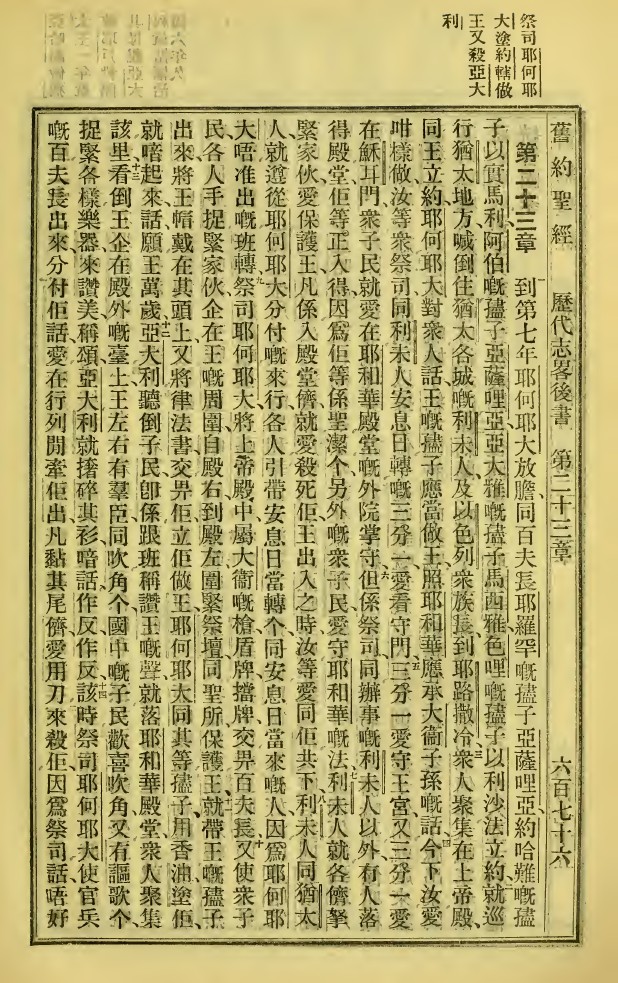 祭司耶何耶
大塗約轄做
王又殺亞大
利
舊約聖經 歷代志畧後書 第二十三章 六百七十六
第二十三章 到第七年耶何耶大放膽同百夫長耶羅罕嘅孻子亞薩哩亞、約哈難嘅孻
子以實馬利、阿伯嘅孻子亞薩哩亞、亞大雅嘅孻子馬西雅、色哩嘅孻子以利沙法立約、二就巡
行猶太地方、喊倒住猶太各城嘅利未人、及以色列衆族長到耶路撒冷、三衆人聚集在上帝殿
同王立約、耶何耶大對衆人話、王嘅孻子應當做王、照耶和華應承大衞子孫嘅話、四今下汝愛
咁樣做、汝等衆祭司同利未人、安息日轉嘅、三分一愛看守門、五三分一愛守王宮、又三分一愛
在穌耳門、衆子民就愛在耶和華殿堂嘅外院掌守、六但係祭司同辦事嘅利未人以外、有人落
得殿堂、佢等正入得、因爲佢等係聖潔个、另外嘅衆子民愛守耶和華嘅法、七利未人就各儕拏
緊家伙、愛保護王、凡係入殿堂儕、就愛殺死佢、王出入之時、汝等愛同佢共下、八利未人同猶太
人、就遵從耶何耶大分付嘅來行、各人引帶安息日當轉个、同安息日當來嘅人、因爲耶何耶
大唔准出嘅班轉、九祭司耶何耶大將上帝殿中屬大衞嘅槍盾牌擋牌、交畀百夫長、十又使衆子
民、各人手捉緊家伙、企在王嘅周圍、自殿右到殿左、圍緊祭壇同聖所保護王、十一就帶王嘅孻子
出來、將王帽戴在其頭上、又將律法書交畀佢、立佢做王、耶何耶大同其等孻子用香油塗佢、
就喑起來話、願王萬歲、十二亞大利聽倒子民卽係跟班稱讚王嘅聲、就落耶和華殿堂衆人聚集
該里、十三看倒王企在殿外嘅臺上、王左右有羣臣、同吹角个、國中嘅子民歡喜吹角、又有謳歌个、
捉緊各樣樂器來讚美稱頌、亞大利就撦碎其衫、喑話、作反作反、十四該時祭司耶何耶大使官兵
嘅百夫長出來、分付佢話、愛在行列閒牽佢出、凡黏其尾儕、愛用刀來殺佢、因爲祭司話、唔好